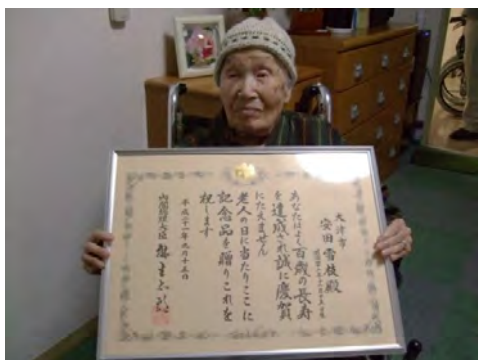 大津市
安田雪枝殿
あなたはよく百歳の長寿
を達成され誠に慶賀
にたえません
老人の日に当たりここに
記念品を贈りこれを
祝します
平成二十一年九月十五日
内閣総理大臣 麻生太郎